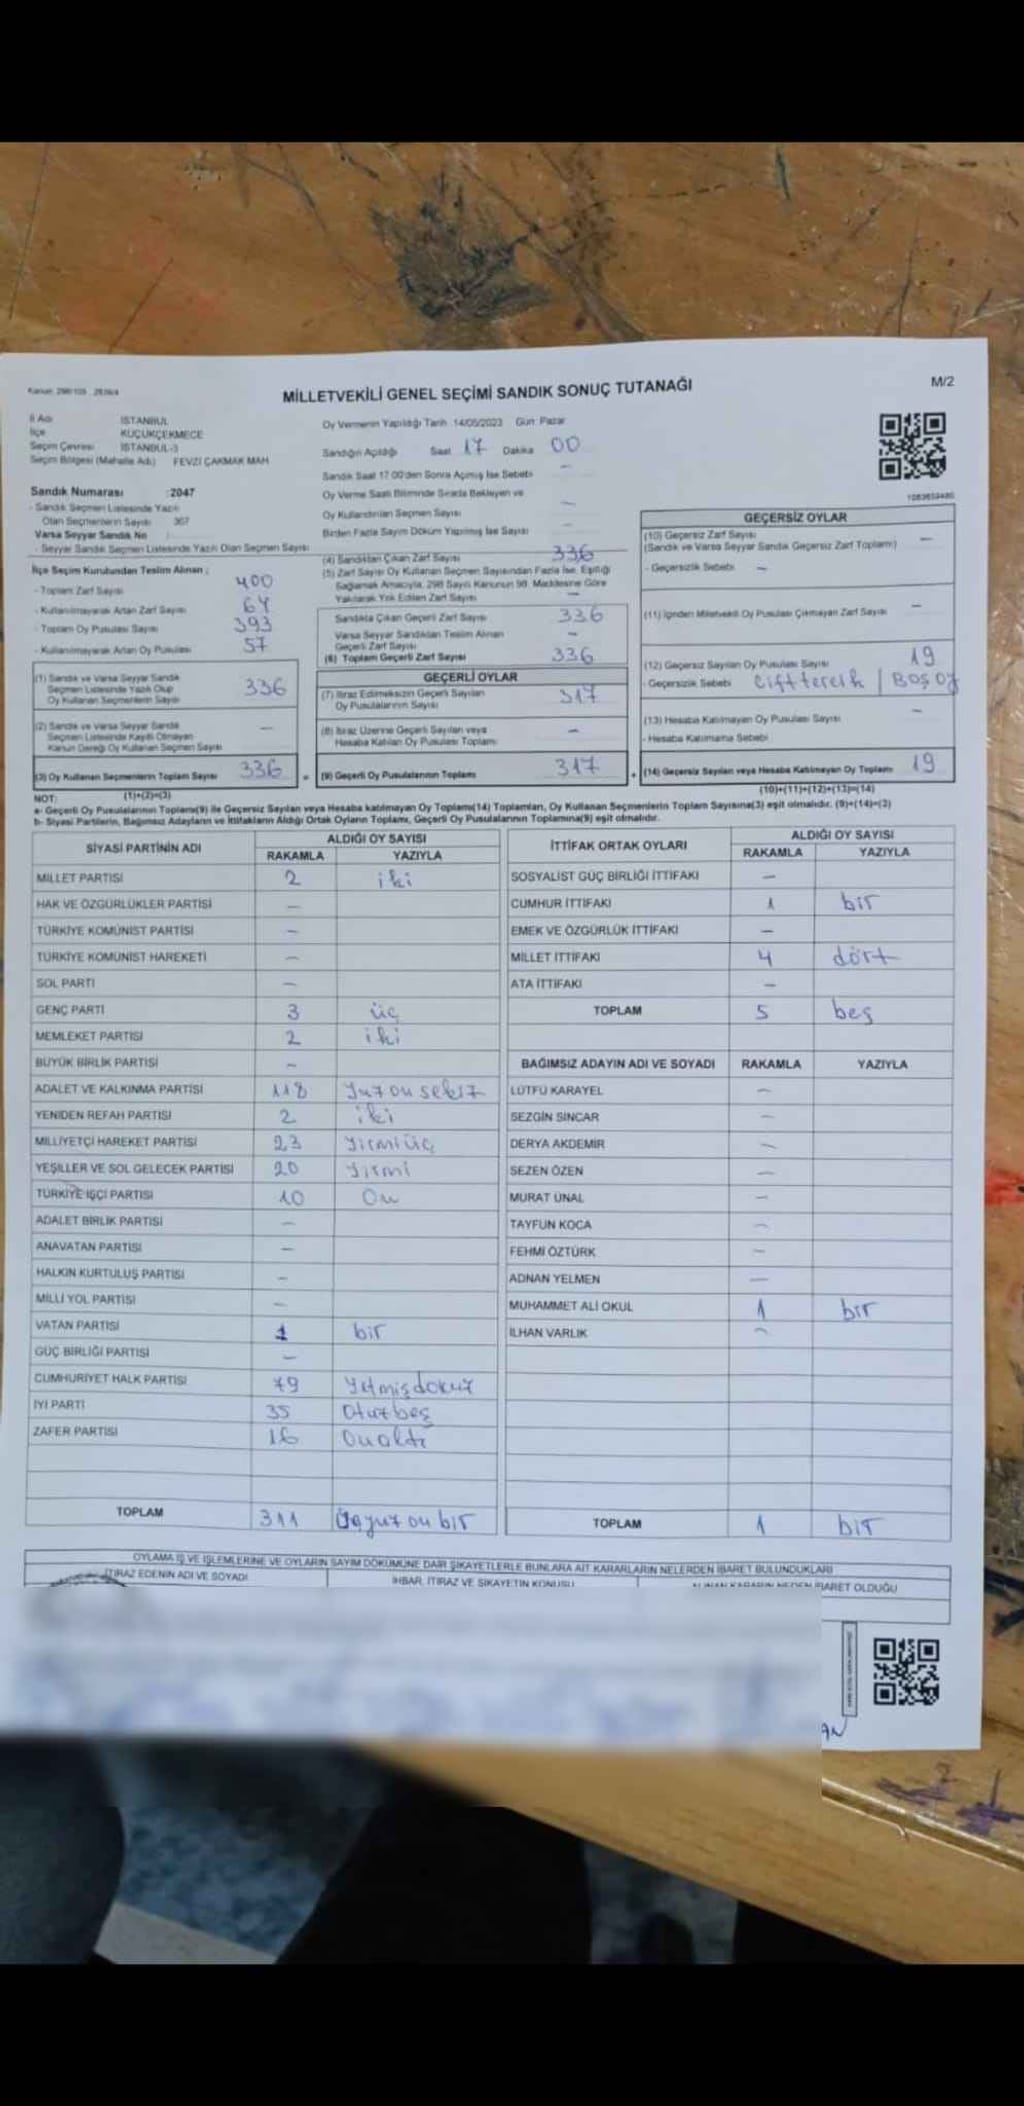 MİLLETVEKİLİ GENEL SEÇİMİ SANDIK SONUÇ TUTANAĞI
M/2
İl Adı İSTANBUL
İlçe KÜÇÜKÇEKMECE
Seçim Çevresi İSTANBUL-3
Seçim Bölgesi (Mahalle Adı) FEVZİ ÇAKMAK MAH
Sandık Numarası :2047
- Sandık Seçmen Listesinde Yazılı
Olan Seçmenlerin Sayısı 367
Varsa Seyyar Sandık No :
- Seyyar Sandık Seçmen Listesinde Yazılı Olan Seçmen Sayısı
İlçe Seçim Kurulundan Teslim Alınan ;
- Toplam Zarf Sayısı 400
- Kullanılmayarak Artan Zarf Sayısı 64
- Toplam Oy Pusulası Sayısı 393
- Kullanılmayarak Artan Oy Pusulası 57
(1) Sandık ve Varsa Seyyar Sandık
Seçmen Listesinde Yazılı Olup
Oy Kullanan Seçmenlerin Sayısı 336
(2) Sandık ve Varsa Seyyar Sandık
Seçmen Listesinde Kayıtlı Olmayan
Kanun Gereği Oy Kullanan Seçmen Sayısı —
(3) Oy Kullanan Seçmenlerin Toplam Sayısı 336
(1)+(2)=(3)
Oy Vermenin Yapıldığı Tarih 14/05/2023 Gün: Pazar
Sandığın Açıldığı Saat 17 Dakika 00
Sandık Saat 17.00'den Sonra Açılmış İse Sebebi —
Oy Verme Saati Bitiminde Sırada Bekleyen ve
Oy Kullandırılan Seçmen Sayısı —
Birden Fazla Sayım Döküm Yapılmış İse Sayısı —
(4) Sandıktan Çıkan Zarf Sayısı 336
(5) Zarf Sayısı Oy Kullanan Seçmen Sayısından Fazla İse, Eşitliği
Sağlamak Amacıyla, 298 Sayılı Kanunun 98. Maddesine Göre
Yakılarak Yok Edilen Zarf Sayısı —
Sandıkta Çıkan Geçerli Zarf Sayısı 336
Varsa Seyyar Sandıktan Teslim Alınan
Geçerli Zarf Sayısı —
(6) Toplam Geçerli Zarf Sayısı 336
GEÇERLİ OYLAR
(7) İtiraz Edilmeksizin Geçerli Sayılan
Oy Pusulalarının Sayısı 317
(8) İtiraz Üzerine Geçerli Sayılan veya
Hesaba Katılan Oy Pusulası Toplamı —
(9) Geçerli Oy Pusulalarının Toplamı 317
GEÇERSİZ OYLAR
(10) Geçersiz Zarf Sayısı —
(Sandık ve Varsa Seyyar Sandık Geçersiz Zarf Toplamı)
- Geçersizlik Sebebi —
(11) İçinden Milletvekili Oy Pusulası Çıkmayan Zarf Sayısı —
(12) Geçersiz Sayılan Oy Pusulası Sayısı 19
- Geçersizlik Sebebi Çift tercih / Boş oy
(13) Hesaba Katılmayan Oy Pusulası Sayısı —
- Hesaba Katılmama Sebebi
(14) Geçersiz Sayılan veya Hesaba Katılmayan Oy Toplamı 19
(10)+(11)+(12)+(13)=(14)
NOT:
a- Geçerli Oy Pusulalarının Toplamı(9) ile Geçersiz Sayılan veya Hesaba katılmayan Oy Toplamı(14) Toplamları, Oy Kullanan Seçmenlerin Toplam Sayısına(3) eşit olmalıdır. (9)+(14)=(3)
b- Siyasi Partilerin, Bağımsız Adayların ve İttifakların Aldığı Ortak Oyların Toplamı, Geçerli Oy Pusulalarının Toplamına(9) eşit olmalıdır.
SİYASİ PARTİNİN ADI ALDIĞI OY SAYISI
RAKAMLA YAZIYLA
MİLLET PARTİSİ 2 iki
HAK VE ÖZGÜRLÜKLER PARTİSİ —
TÜRKİYE KOMÜNİST PARTİSİ —
TÜRKİYE KOMÜNİST HAREKETİ —
SOL PARTİ —
GENÇ PARTİ 3 üç
MEMLEKET PARTİSİ 2 iki
BÜYÜK BİRLİK PARTİSİ —
ADALET VE KALKINMA PARTİSİ 118 Yüzonsekiz
YENİDEN REFAH PARTİSİ 2 iki
MİLLİYETÇİ HAREKET PARTİSİ 23 Yirmiüç
YEŞİLLER VE SOL GELECEK PARTİSİ 20 Yirmi
TÜRKİYE İŞÇİ PARTİSİ 10 On
ADALET BİRLİK PARTİSİ —
ANAVATAN PARTİSİ —
HALKIN KURTULUŞ PARTİSİ —
MİLLİ YOL PARTİSİ —
VATAN PARTİSİ 1 bir
GÜÇ BİRLİĞİ PARTİSİ —
CUMHURİYET HALK PARTİSİ 79 Yetmişdokuz
İYİ PARTİ 35 Otuzbeş
ZAFER PARTİSİ 16 Onaltı
TOPLAM 311 Üçyüz on bir
İTTİFAK ORTAK OYLARI ALDIĞI OY SAYISI
RAKAMLA YAZIYLA
SOSYALİST GÜÇ BİRLİĞİ İTTİFAKI —
CUMHUR İTTİFAKI 1 bir
EMEK VE ÖZGÜRLÜK İTTİFAKI —
MİLLET İTTİFAKI 4 dört
ATA İTTİFAKI —
TOPLAM 5 beş
BAĞIMSIZ ADAYIN ADI VE SOYADI RAKAMLA YAZIYLA
LÜTFÜ KARAYEL —
SEZGİN SİNCAR —
DERYA AKDEMİR —
SEZEN ÖZEN —
MURAT ÜNAL —
TAYFUN KOCA —
FEHMİ ÖZTÜRK —
ADNAN YELMEN —
MUHAMMET ALİ OKUL 1 bir
İLHAN VARLIK —
TOPLAM 1 bir
OYLAMA İŞ VE İŞLEMLERİNE VE OYLARIN SAYIM DÖKÜMÜNE DAİR ŞİKAYETLERLE BUNLARA AİT KARARLARIN NELERDEN İBARET BULUNDUKLARI
İTİRAZ EDENİN ADI VE SOYADI
İHBAR, İTİRAZ VE ŞİKAYETİN KONUSU
ALINAN KARARIN NEDEN İBARET OLDUĞU